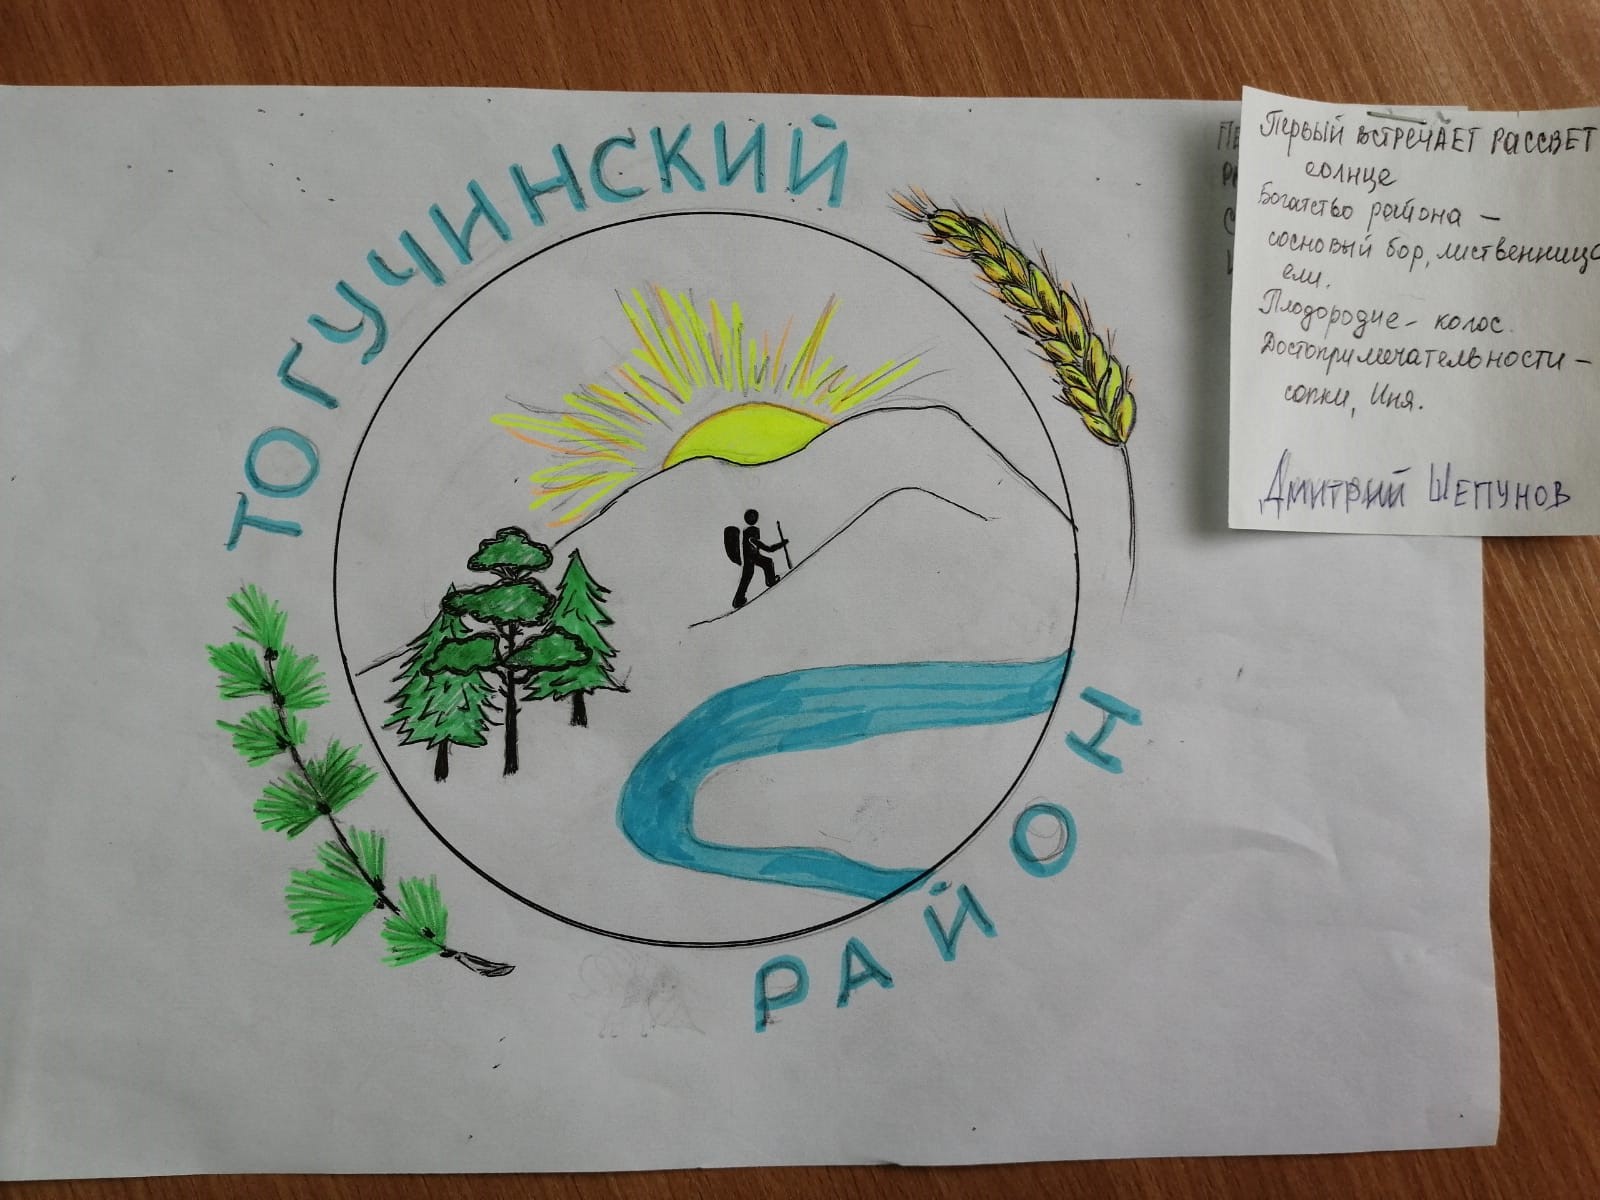 ТОГУЧИНСКИЙ
РАЙОН
Первый встречает рассвет
солнце
Богатство района –
сосновый бор, лиственница
ели.
Плодородие – колос.
Достопримечательности –
сопки, Иня.
Дмитрий Шепунов